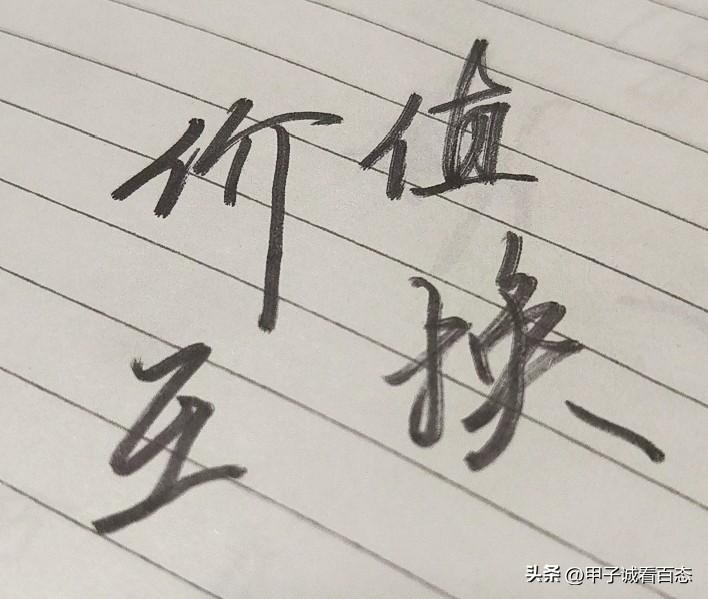 价值
互换
头条 @甲子诚看百态